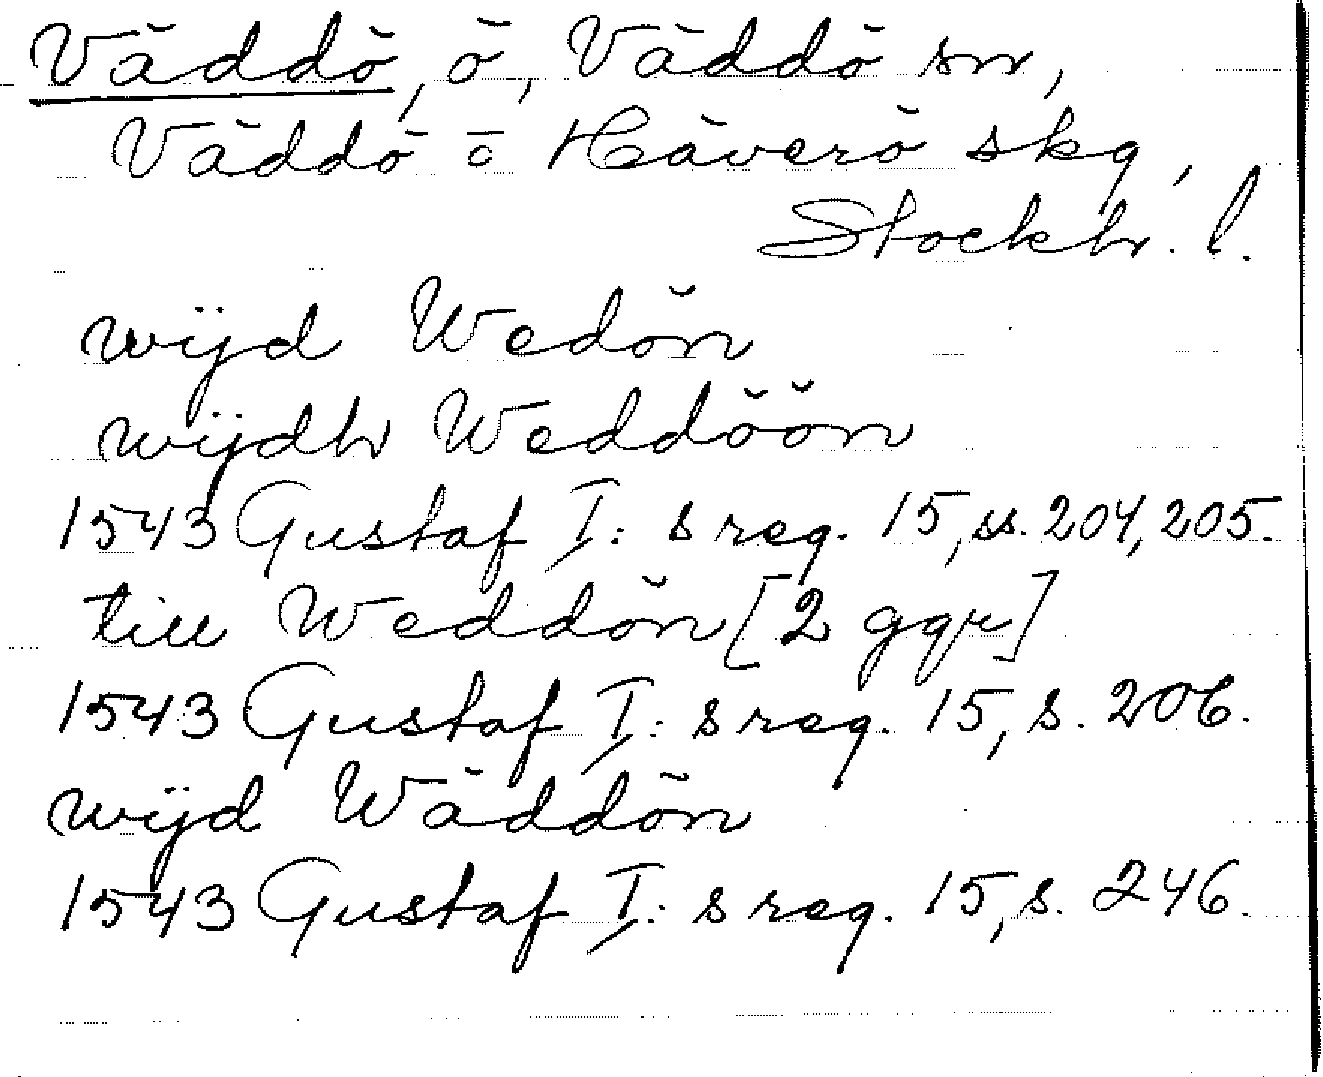 Väddö, ö, Väddö sn,
Väddö o Häverö skg,
Stockh. l.
wijd Wedön
wijdh Weddöön
1543 Gustaf I:s reg. 15, ss. 204, 205.
till Weddön [2 ggr]
1543 Gustaf I:s reg. 15, s. 206.
wijd Wäddön
1543 Gustaf I:s reg. 15, s. 246.